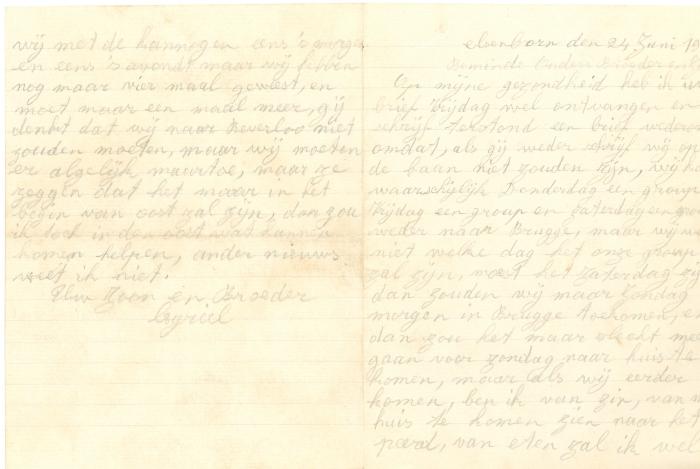 elsenborn den 24 Juni 19
Beminde Ouders Broeder en
Op mijne gezondheid heb ik
brief Vrijdag wel ontvangen en
schrijf terstond een brief wedero
omdat, als gij weder schrijf wij op
de baan niet zouden zijn, wij
waarschijlijk Donderdag een group
Vrijdag een group en zaterdag een gro
weder naar Brugge, maar wij
niet welke dag het onze group
zal zijn, moest het zaterdag zij
dan zouden wij maar zondag
morgen in Brugge toekomen, en
dan zou het maar slecht mee
gaan voor zondag naar huis te
komen, maar als wij eerder
komen, ben ik van zin, van
huis te komen zien naar het
peerd, van eten zal ik wel
wij met de kannogen eens 's morgen
en eens 's avondt maar wij hebben
nog maar vier maal geweest, en
moet maar een maal meer, gij
denkt dat wij naar Beverloo niet
zouden moeten, maar wij moeten
er algelijk naartoe, maar ze
zeggen dat het maar in het
begin van oost zal zijn, dan zou
ik toch in den oost wat kannen
komen helpen, ander nieuws
weet ik niet.
Uw Zoon en Broeder
Cyriel